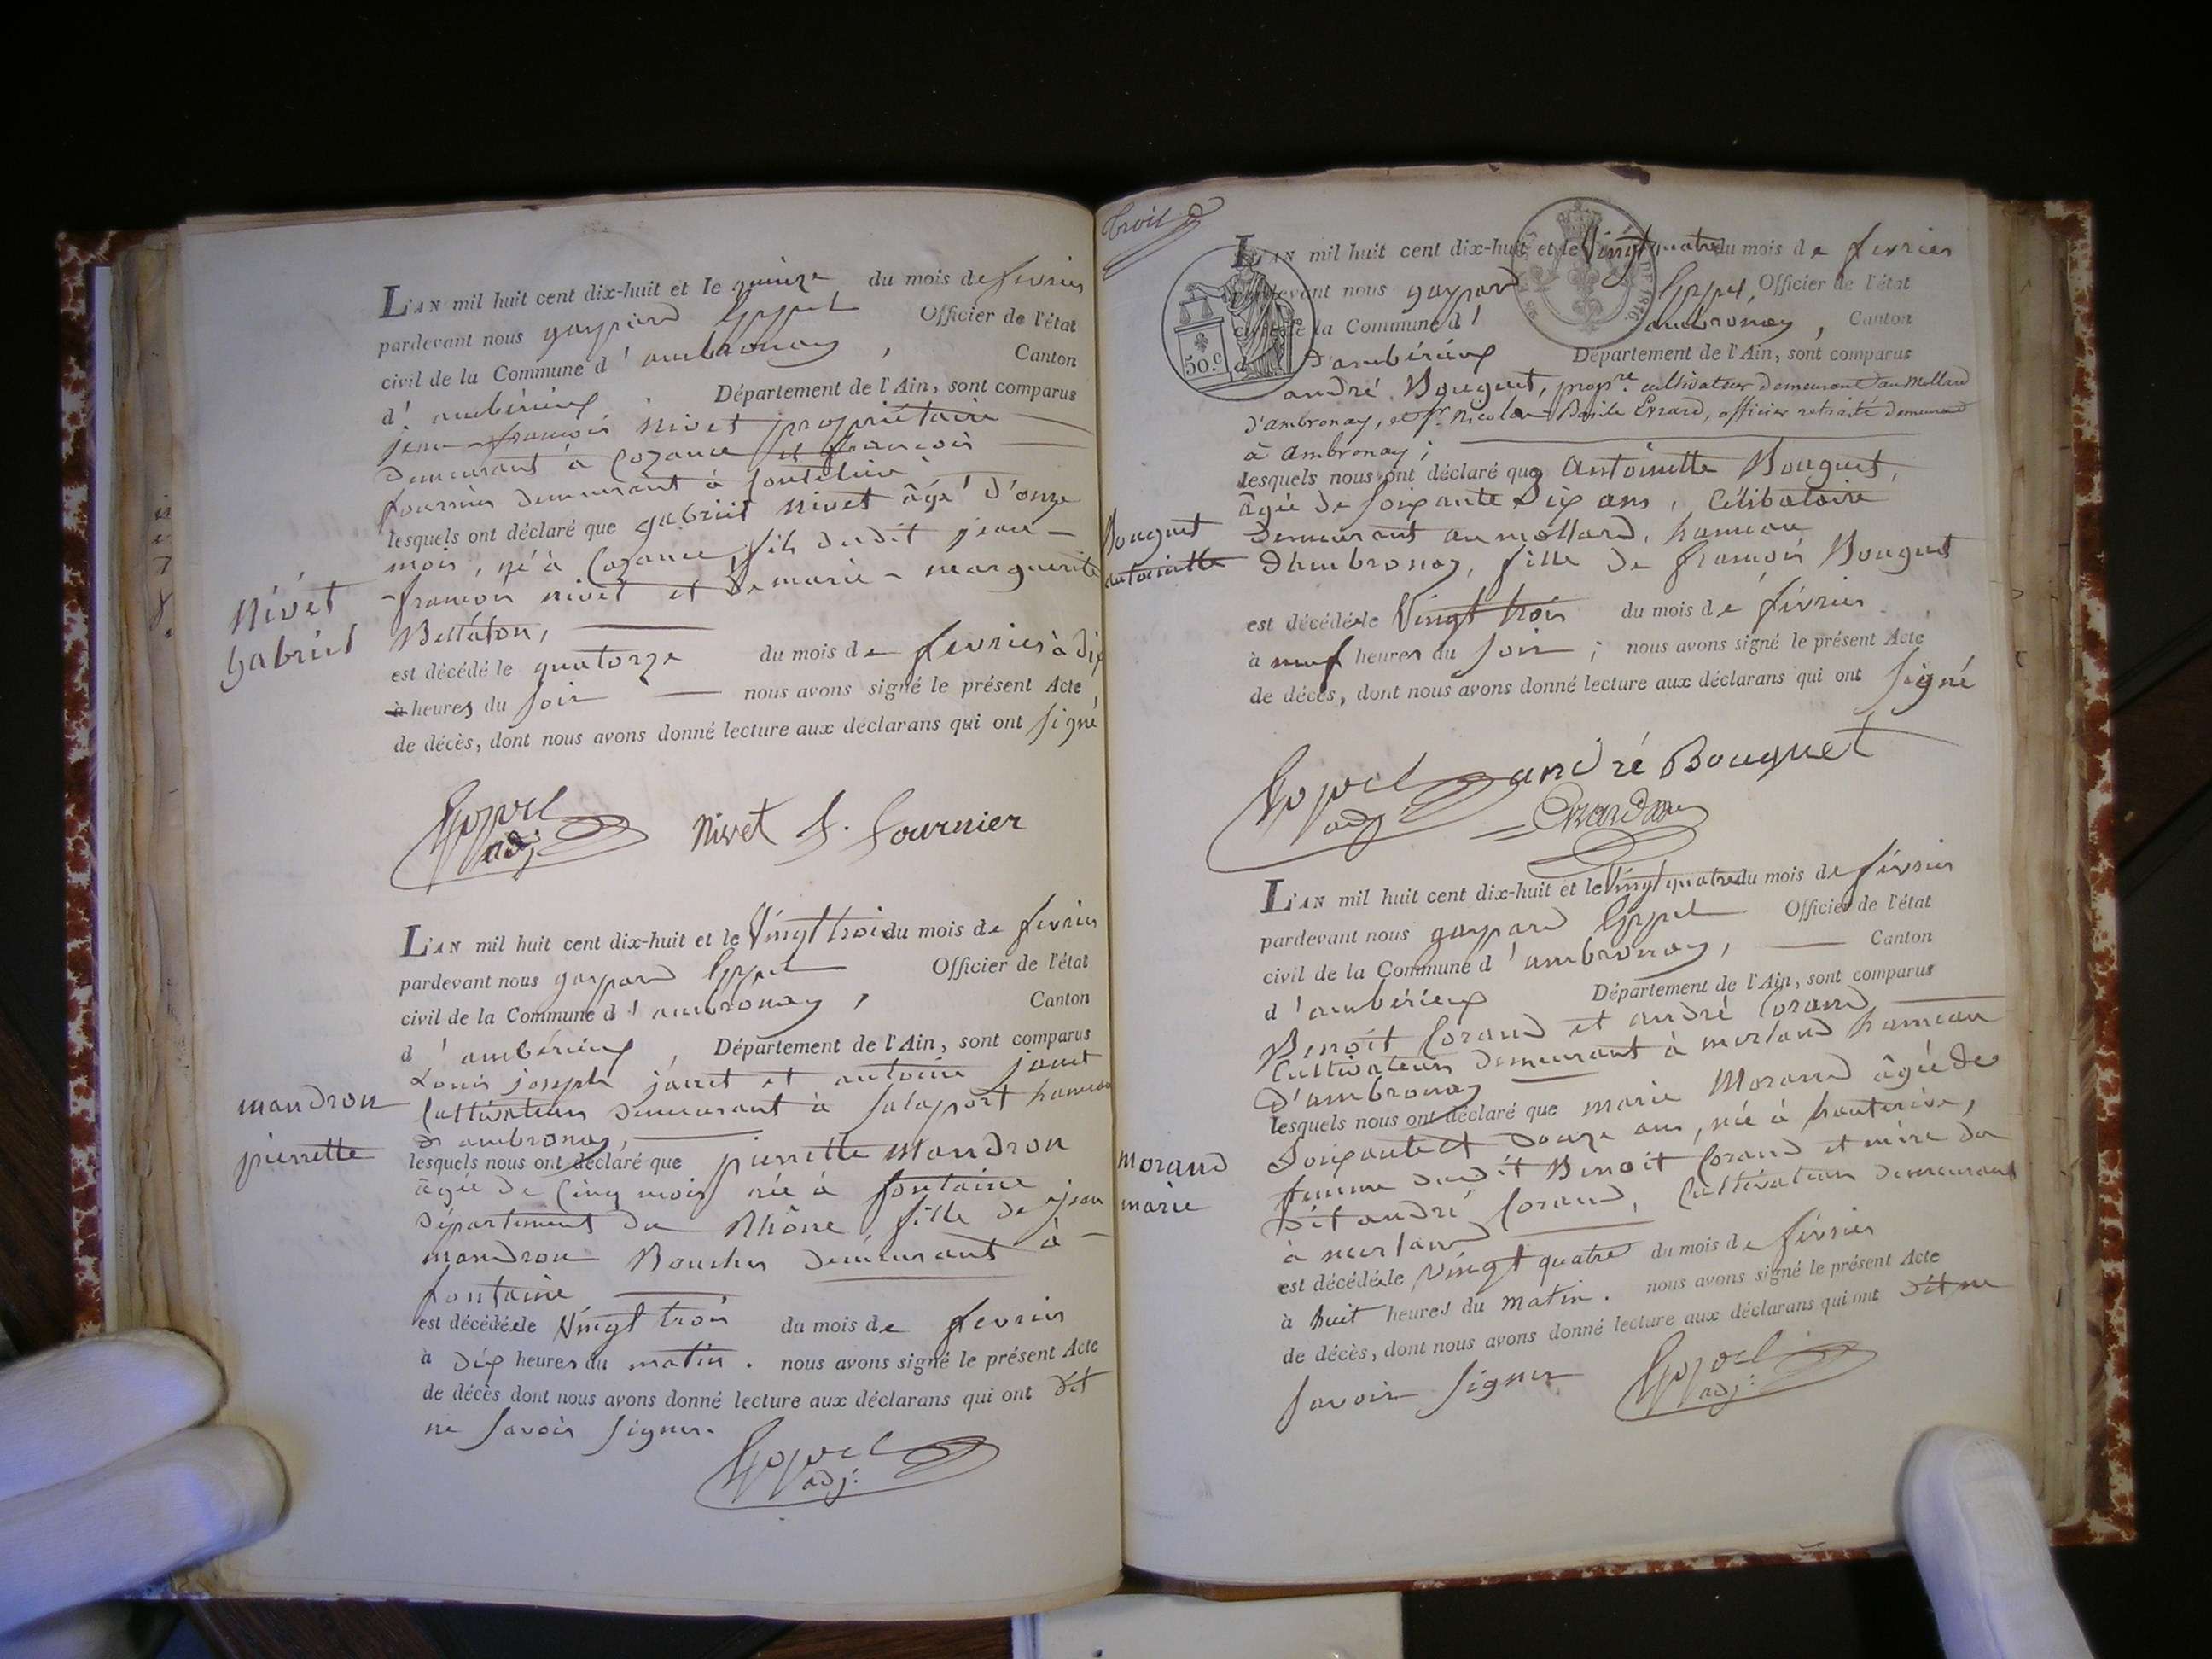 L'AN mil huit cent dix-huit et le quinze du mois de fevrier
pardevant nous gaspard Officier de l'état
civil de la Commune d'ambronay, Canton
d'ambérieux Département de l'Ain, sont comparus
jean-françois nivet propriétaire
demeurant à Cozance et françois
fournier demeurant à
lesquels ont déclaré que gabriel nivet âgé d'onze
mois, né à Cozance, fils dudit jean-
françois nivet et de marie-marguerite
Nivet
gabriel
est décédé le quatorze du mois de fevrier à dix
à heures du soir nous avons signé le présent Acte
de décès, dont nous avons donné lecture aux déclarans qui ont signé
adj: Nivet f. fournier
L'AN mil huit cent dix-huit et le Vingt trois du mois de fevrier
pardevant nous gaspard Officier de l'état
civil de la Commune d'ambronay, Canton
d'ambérieux, Département de l'Ain, sont comparus
Louis joseph janet et antoine janet
Cultivateurs demeurant à Salaport hameau
d'ambronay,
mandron
pierrette
lesquels nous ont déclaré que pierrette Mandron
âgée de Cinq mois née à fontaine
département du Rhône fille de jean
mandron Boucher demeurant à
fontaine
est décédée le Vingt trois du mois de fevrier
à dix heures du matin. nous avons signé le présent Acte
de décès dont nous avons donné lecture aux déclarans qui ont dit
ne savoir signer.
adj:
trois
L'AN mil huit cent dix-huit et le Vingt quatre du mois de fevrier
pardevant nous gaspard Officier de l'état
civil de la Commune d'ambronay, Canton
50.c
d'ambérieux Département de l'Ain, sont comparus
andré Bouquet, propre. cultivateur demeurant au Mollard
d'ambronay, et Sr. Nicolas Basile Errard, officier retraité demeurant
à ambronay;
lesquels nous ont déclaré que Antoinette Bouquet,
âgée de soixante dix ans, Célibataire
Bouquet
antoinette
demeurant au mollard, hameau
d'Ambronay, fille de françois Bouquet
est décédée le Vingt trois du mois de février
à neuf heures du soir; nous avons signé le présent Acte
de décès, dont nous avons donné lecture aux déclarans qui ont signé
andré Bouquet
adj
L'AN mil huit cent dix-huit et le Vingt quatre du mois de février
pardevant nous gaspard Officier de l'état
civil de la Commune d'ambronay, Canton
d'ambérieux Département de l'Ain, sont comparus
Benoit Corand et andré Corand
Cultivateurs demeurant à merland hameau
d'ambronay
lesquels nous ont déclaré que marie Morand âgée de
Soixante et douze ans, née à hauterive,
Morand
marie
femme dudit Benoit Corand et mère du
dit andré Corand, Cultivateurs demeurant
à merland
est décédée le Vingt quatre du mois de février
à huit heures du matin. nous avons signé le présent Acte
de décès, dont nous avons donné lecture aux déclarans qui ont dit ne
savoir signer
adj: